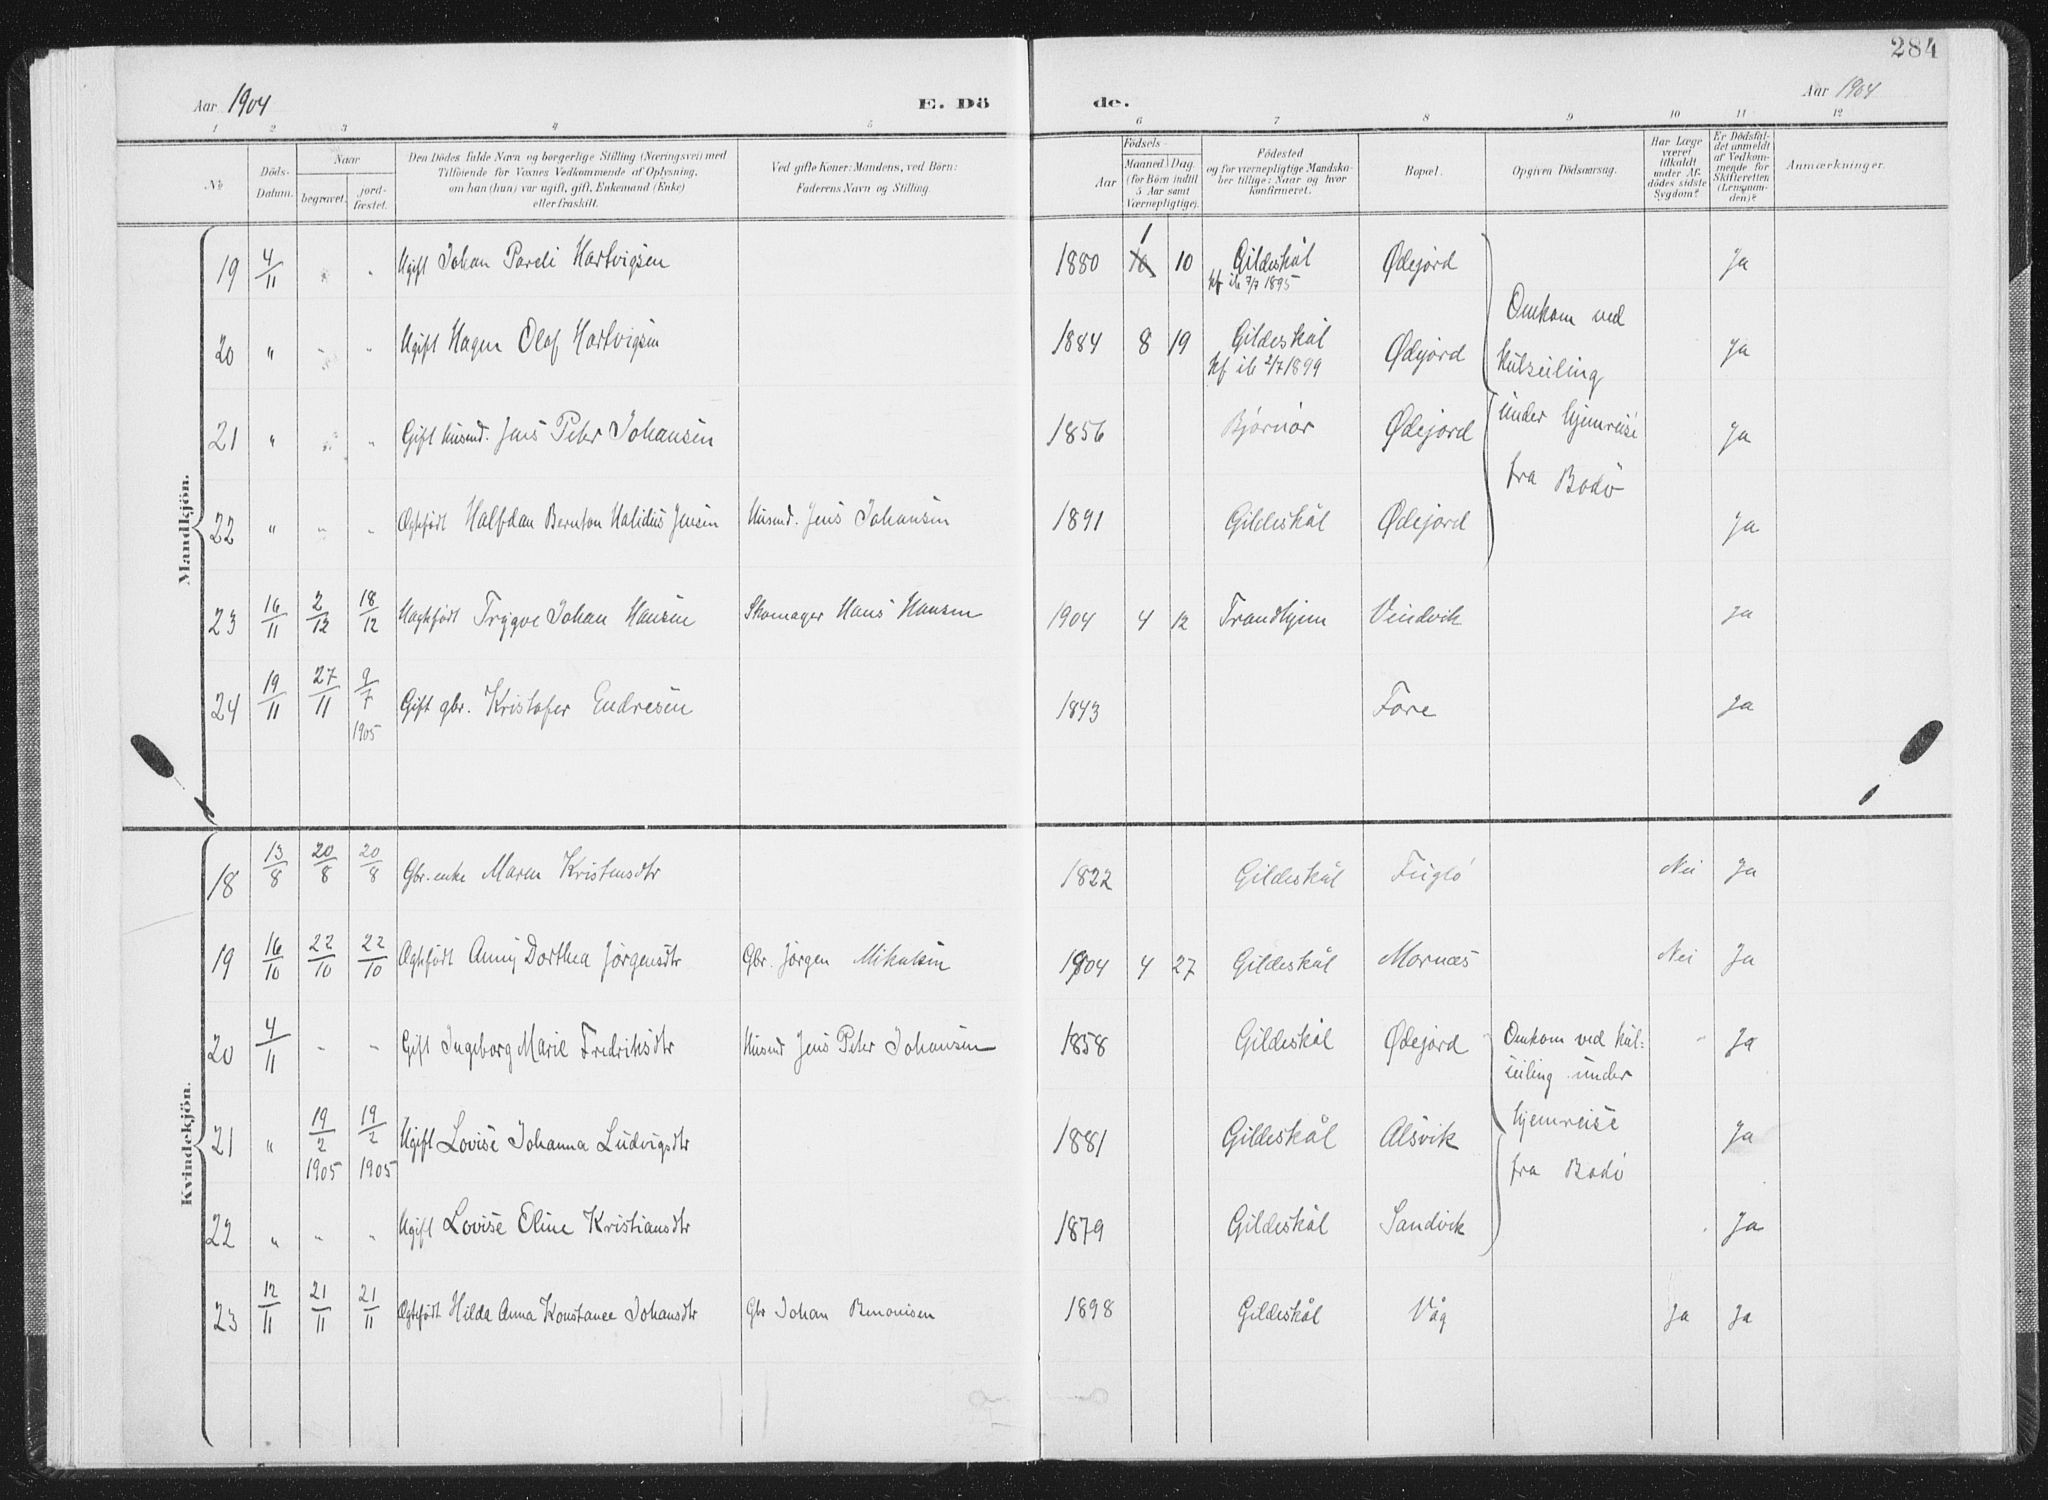 284
Aar 1904 E. Dö de. Aar 1904
1 2 3 4 5 6 7 8 9 10 11 12
№
Döds-Datum.
Naar
begravet.
jord-fæstet.
Den Dödes fulde Navn og borgerlige Stilling (Næringsvei) med
Tilföiende for Voxnes Vedkommende af Oplysning,
om han (hun) var ugift, gift, Enkemand (Enke)
eller fraskilt.
Ved gifte Koner: Mandens, ved Börn:
Faderens Navn og Stilling.
Födsels-
Aar
Maaned Dag
(for Börn indtil
5 Aar samt
Værnepligtige).
Födested
og for værnepligtige Mandska-
ber tillige: Naar og hvor
konfirmeret.
Bopæl.
Opgiven Dödsaarsag.
Har Læge
været
tilkaldt
under Af-
dödes sidste
Sygdom?
Er Dödsfal-
det anmeldt
af Vedkom-
mende for
Skifteretten
(Lensman-
den)?
Anmærkninger.
Mandkjön.
19 4/11 " " Ugift Johan Pareli Hartvigsen 1880 10 1 10 Gildeskål Ødejord Ja
kf ib 7/7 1895
20 " " " Ugift Hagen Olaf Hartvigsen 1884 8 19 Gildeskål Ødejord Ja
kf ib 2/7 1899
21 " " " Gift Husmd. Jens Peter Johansen 1856 Bjørnør Ødejord Ja
22 " " " Ægtefødt Halfdan Bernton Halidus Jensen Husmd. Jens Johansen 1891 Gildeskål Ødejord Ja
Omkom ved
kulseiling
under hjemreise
fra Bodø
23 16/11 2/12 18/12 Uægtefødt Trygve Johan Hansen Skomager Hans Hansen 1904 4 12 Trondhjem Vindvik Ja
24 19/11 27/11 9/7 1905 Gift gbr. Kristofer Endresen 1843 Fore Ja
Kvindekjön.
18 13/8 20/8 20/8 Gbr. enke Maren Kristensdtr 1822 Gildeskål Fuglø Nei Ja
19 16/10 22/10 22/10 Ægtefødt Anny Dorthea Jørgensdtr Gbr. Jørgen Mikalsen 1904 4 27 Gildeskål Mornæs Nei Ja
20 4/11 - - Gift Ingeborg Marie Fredriksdtr Husmd Jens Peter Johansen 1858 Gildeskål Ødejord " Ja
21 " 19/2 1905 19/2 1905 Ugift Lovise Johanna Ludvigsdtr 1881 Gildeskål Alsvik Ja
22 " " " Ugift Lovise Eline Kristiansdtr 1879 Gildeskål Sandvik Ja
Omkom ved kul-
seiling under
hjemreise
fra Bodø
23 12/11 21/11 21/11 Ægtefødt Hilda Anna Konstance Johansdtr Gbr Johan Benonisen 1898 Gildeskål Våg Ja Ja